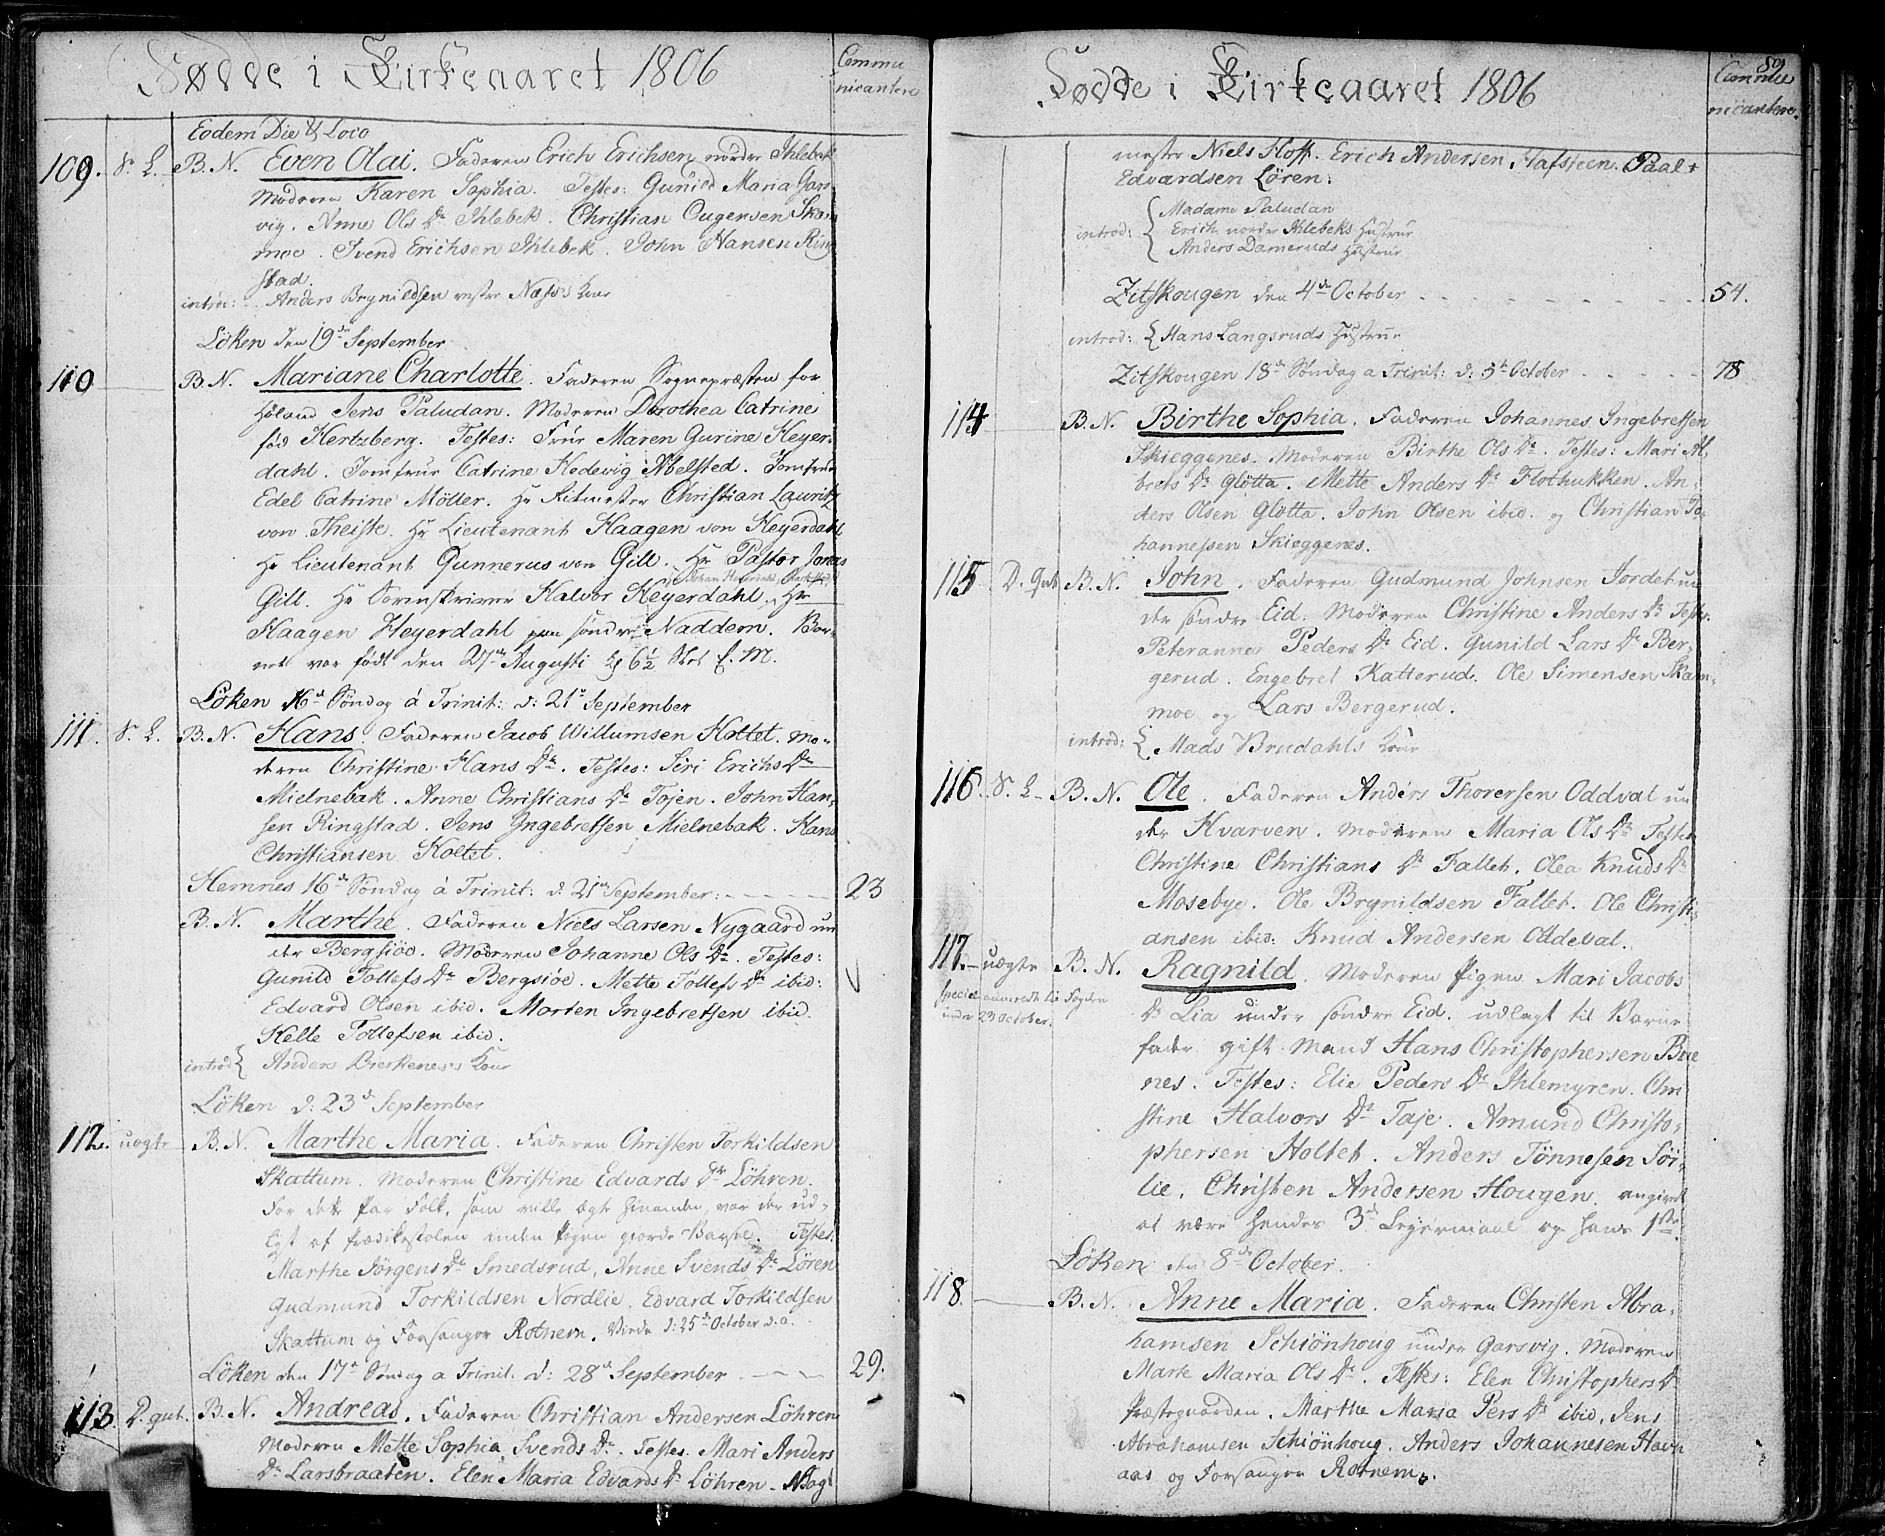 Fødde i Kirkeaaret 1806
Commu
nicantere
Eodem Die & Loco
109. S. L. B. N. Even Olai. Faderen Erich Erichsen nordre Ihlebek
Moderen Karen Sophia. Testes: Gunild Maria Gars
vig. Anne Ols Dr Ihlebek. Christian Ougensen Skam
moe. Svend Erichsen Ihlebek. John Hansen Ring
stad.
introd: Anders Brynildsen vestre Næss's Kone
Löken den 19de September
110 B. N. Mariane Charlotte. Faderen Sognepræsten for
Høland Jens Paludan. Moderen Dorothea Catrine
fød Hertzberg. Testes: Frue Maren Gurine Heyer-
dahl. Jomfrue Catrine Hedevig Abelsted. Jomfrue
Edel Catrine Möller. Hr Ritmester Christian Lauritz
von Theiste. Hr Lieutenant Haagen von Heyerdahl
Hr Lieutenant Gunnerus von Gill. Hr Pastor Jonas
Gill. Hr Sorenskriver Halvor Heyerdahl. Hr
Haagen Heyerdahl paa søndre Naddem. Bar-
net var født den 27de Augusti Kl 6½ Slet f. M.
Löken 16de Söndag à Trinit: d: 21de September
111. S. L. B. N. Hans. Faderen Jacob Willumsen Holtet. Mo-
deren Christine Hans Dr. Testes: Siri Erichs Dr
Mielnebak. Anne Christians Dr Tojen. John Han-
sen Ringstad. Jens Ingebretsen Mielnebak. Hans
Christiansen Holtet.
Hemnes 16de Söndag à Trinit: d: 21de September: - - - - 23
B. N. Marthe. Faderen Niels Larsen Nygaard un
der Bergsiöe. Moderen Johanne Ols Dr. Testes:
Gunild Tollefs Dr Bergsiöe. Mette Tollefs Dr ibid:
Edvard Olsen ibid. Morten Ingebretsen ibid.
Helle Tollefsen ibid.
introd { Anders Bieskenes's Kone
Löken d: 23de September
112. uægte B. N. Marthe Maria. Faderen Christen Torkildsen
Skattum. Moderen Christine Edvards Dr Löhren.
For dette Par Folk, som ville ægte hinanden, var der ud-
lyst af Prædikestolen inden Pigen giorde Barsel. Testes.
Marthe Jörgens Dr Smedsrud, Anne Svends Dr Lören
Gudmund Torkildsen Nordlie. Edvard Torkildsen
Skattum og Forsanger Rotnem. Viede d: 25de October d. a.
Löken den 17de Söndag a Trinit. d: 28de September - - - 29.
113 D. gut. B. N. Andreas. Faderen Christian Andersen Löhren
Moderen Mette Sophia Svends Dr. Testes. Mari Anders
Dr Larsbraaten. Elen Maria Edvards Dr Löhren. Vag
Fødde i Kirkeaaret 1806
89
Commu
nicantere.
mester Niels Hoff. Erich Andersen Hafsteen. Paal
Edvardsen Lören.
introd: { Madame Paludan
Erich nordre Ihlebeks Hustrue
Anders Dameruds Hustrue
Zitskougen den 4de October - - - - 54.
introd: { Hans Langsruds Hustrue
Zitskougen 18de Söndag a Trinit: d: 5te October - - - - 78
114 B. N. Birthe Sophia. Faderen Johannes Ingebretsen
Skieggenes. Moderen Birthe Ols Dr. Testes: Mari Al,
brets Dr Glotta. Mette Anders Dr Flothukken. An-
ders Olsen Glotta. John Olsen ibid. og Christian Jo-
hannessen Skieggenes.
115 D. gut B. N. John. Faderen Gudmund Johnsen Jordet un
der søndre Eid. Moderen Christine Anders Dr Testes:
Peteranne Peders Dr Eid. Gunild Lars Dr Ber-
gerud. Engebret Katterud. Ole Simensen Skam-
moe og Lars Bergerud.
introd: { Mads Brudahls Kone
116. S. L. B. N. Ole. Faderen Anders Thorersen Oddval un
der Hvarven. Moderen Maria Ols Dr Testes
Christine Christians Dr Fallet. Olea Knuds Dr
Mosebye. Ole Brynildsen Fallet. Ole Christi-
ansen ibid: Knud Andersen Oddeval.
117. uægte B. N. Ragnild. Moderen Pigen Mari Jacobs
Special anmeldt til Fogden
under 23 October.
Dr Lia under søndre Eid. udlagt til Barne
fader gift Mand Hans Christophersen Bue
nes. Testes: Elie Peders Dr Ihlemyren. Chri
stine Halvors Dr Taje. Amund Christo-
phersen Holtet. Anders Tönnesen Sör-
lie. Christen Andersen Hougen. angivet
at være hendes 3de Leyermaal og hans 1ste.
Löken den 8de October.
118. B. N. Anne Maria. Faderen Christen Abra-
hamsen Schiönhoug under Garsvig. Moderen
Marte Maria Ols Dr. Testes: Elen Christophers Dr
Præstegaarden. Marthe Maria Pers Dr ibid. Jens
Abrahamsen Schiönhoug. Anders Johannesen Havn
aas og Forsanger Rotnem.